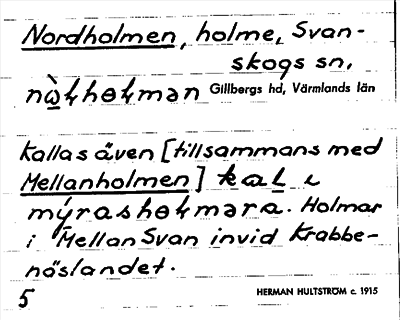 Nordholmen, holme, Svan-
skogs sn,
Gillbergs hd, Värmlands län
Kallas även [tillsammans med
Mellanholmen]
Holmar
i Mellan Svan invid Krabbe-
näslandet.
5
HERMAN HULTSTRÖM c. 1915